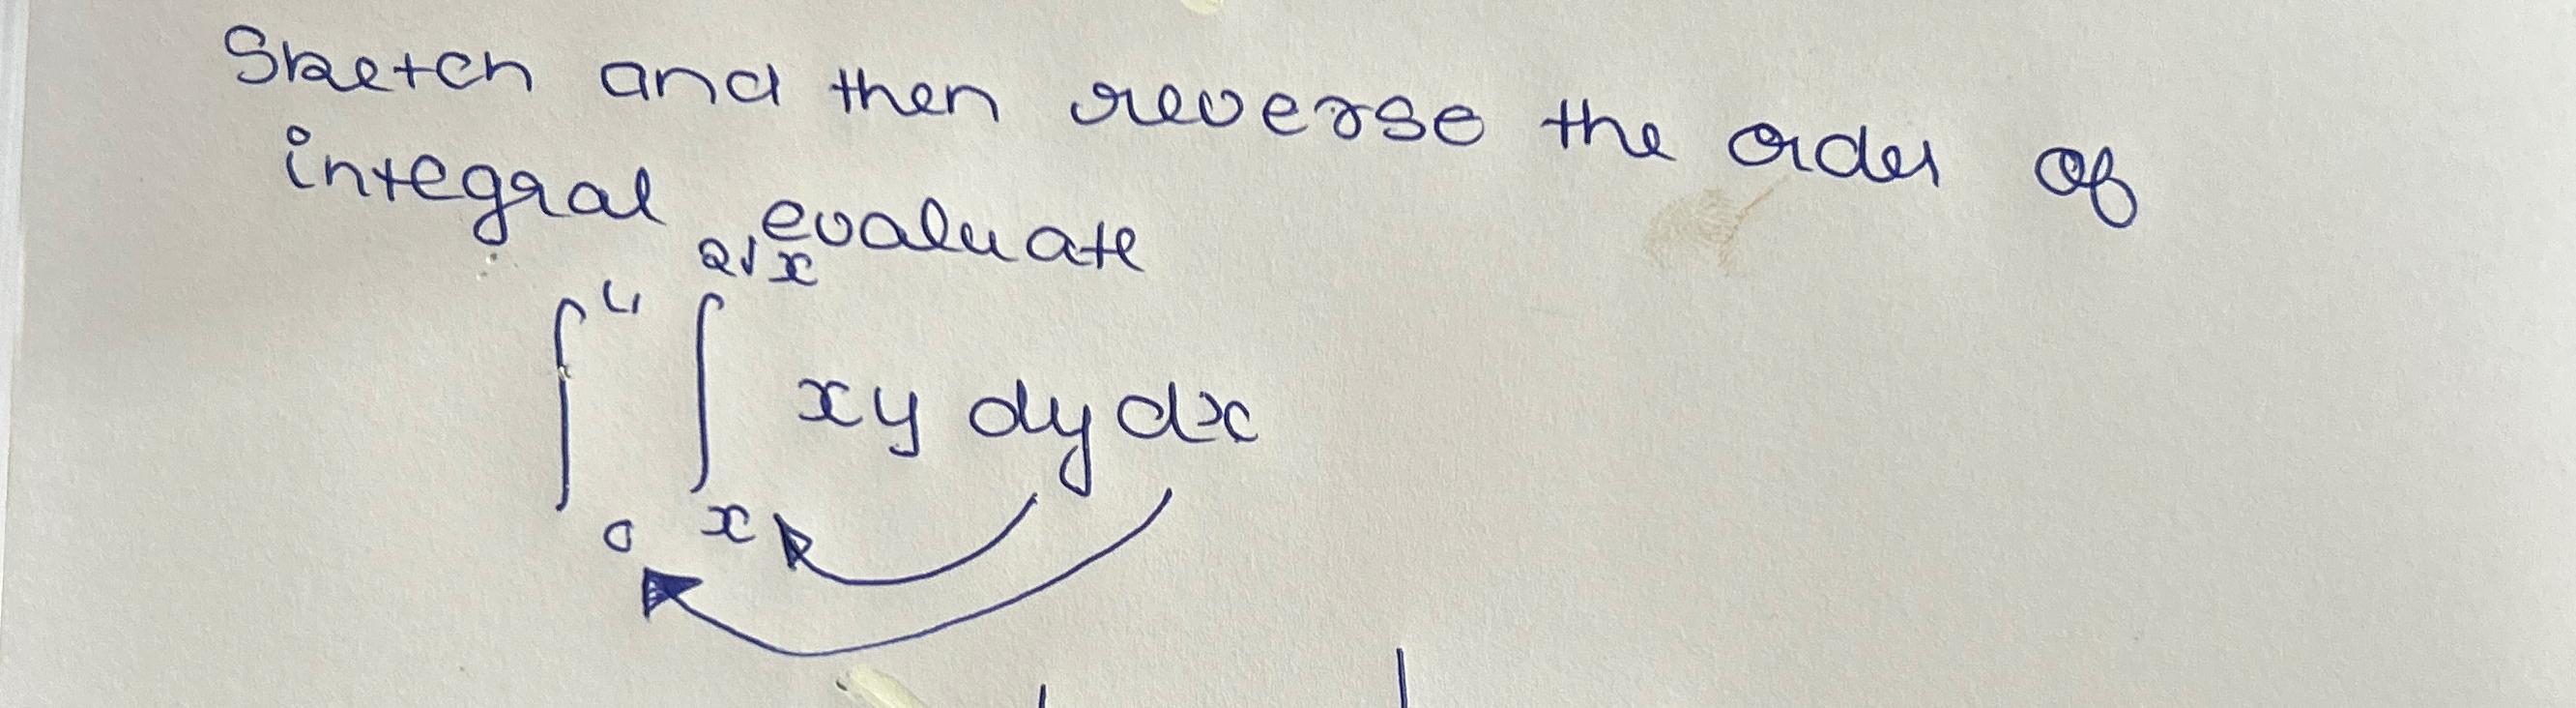 Sketch and then reverse the order of
integral evaluate
∫₀⁴ ∫ₓ^{2√x} xy dy dx